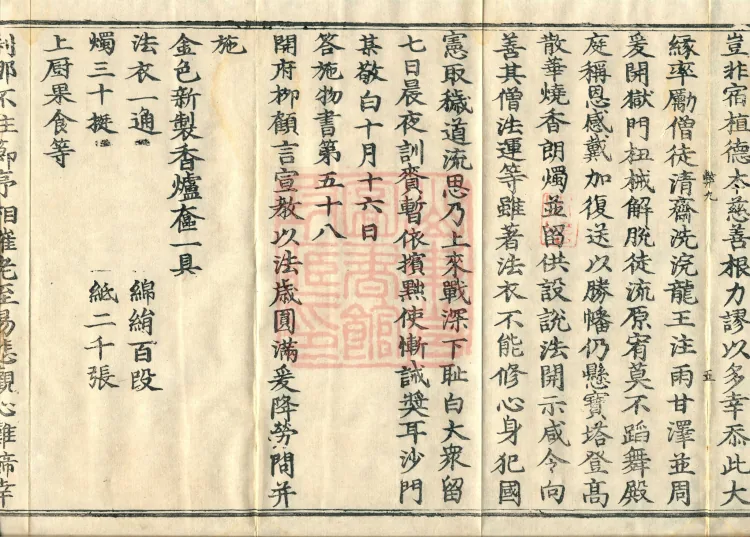 豈非宿植德本慈善根力謬以多幸忝此大
緣率勵僧徒清齋洗浣龍王注雨甘澤並周
爰開獄門杻械解脫徒流原宥莫不蹈舞殿
庭稱恩感戴加復送以勝幡仍懸寶塔登高
散華燒香朗燭並留供設說法開示咸令向
善其僧法運等雖著法衣不能修心身犯國
憲取穢道流思乃上來戰深下耻白大衆留
七日晨夜訓責暫依擯黜使慚誡獎耳沙門
某敬白十月十六日
答施物書第五十八
開府柳顧言宣教以法歲圓滿爰降勞問并
施
金色新製香爐奩一具
法衣一通 綿絹百段
燭三十挺 紙二千張
上厨果食等
刹那不住節序相催老至易悲觀心難諦幸